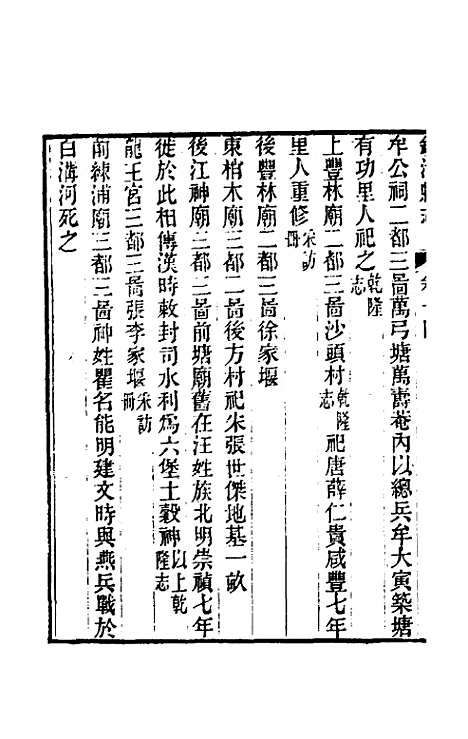 牟公祠二都三啚萬弓塘萬壽菴內以總兵牟大寅築塘
有功里人祀之乾隆志
上豐林廟二都三啚沙頭村乾隆志祀唐薛仁貴咸豐七年
里人重修采訪冊
後豐林廟二都三啚徐家堰
東棺木廟三都二啚後方村祀宋張世傑地基一畝
後江神廟三都三啚前塘廟舊在汪姓族北明崇禎七年
徙於此相傳漢時敕封司水利爲六堡土穀神以上乾隆志
龍王宮三都三啚張李家堰采訪冊
前練浦廟三都三啚神姓瞿名能明建文時與燕兵戰於
白溝河死之